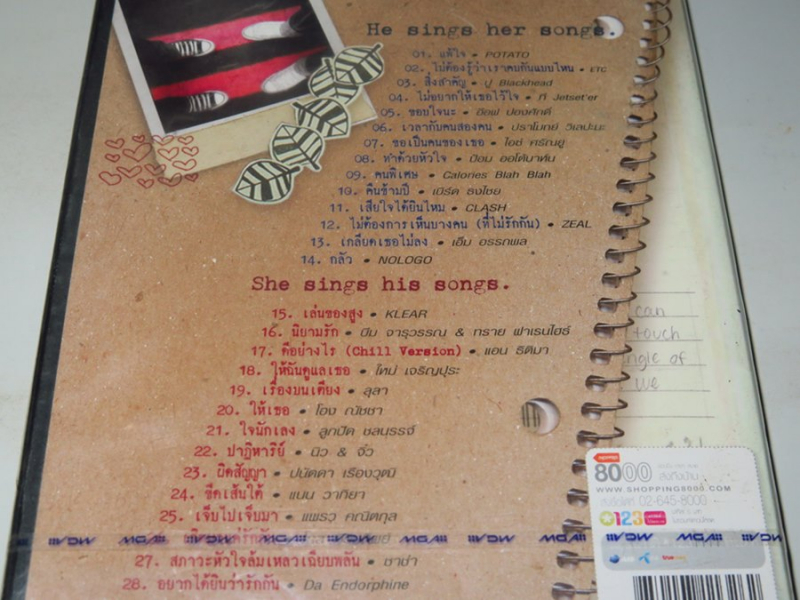 He sings her songs.
01. แพ้ใจ • POTATO
02. ไม่ต้องรู้ว่าเราคบกันแบบไหน • ETC
03. สิ่งสำคัญ • ปู Blackhead
04. ไม่อยากให้เธอไว้ใจ • ที Jetset'er
05. ขอบใจนะ • อ๊อฟ ปองศักดิ์
06. เวลากับคนสองคน • ปราโมทย์ วิเลปะนะ
07. ขอเป็นคนของเธอ • ไอซ์ ศรัณยู
08. ทำด้วยหัวใจ • ป๊อบ ออโต้บาห์น
09. คนพิเศษ • Calories Blah Blah
10. คืนข้ามปี • เบิร์ด ธงไชย
11. เสียใจได้ยินไหม • CLASH
12. ไม่ต้องการเห็นบางคน (ที่ไม่รักกัน) • ZEAL
13. เกลียดเธอไม่ลง • เอ็ม อรรถพล
14. กลัว • NOLOGO
She sings his songs.
15. เล่นของสูง • KLEAR
16. นิยามรัก • บีม จารุวรรณ & ทราย ฟาเรนไฮธ์
17. คือย่างไร (Chill Version) • แอน ธิติมา
18. ให้ฉันดูแลเธอ • ใหม่ เจริญปุระ
19. เรื่องบนเตียง • สุลา
20. ให้เธอ • โอง ณัชชา
21. ใจนักเลง • ลูกปัด ชลนรรจ์
22. ปาฏิหาริย์ • นิว & จิ๋ว
23. ผิดสัญญา • ปนัดดา เรืองวุฒิ
24. ขีดเส้นใต้ • แนน วาทิยา
25. เจ็บไปเจ็บมา • แพรว คณิตกุล
27. สภาวะหัวใจล้มเหลวเฉียบพลัน • ซาซ่า
28. อยากได้ยินว่ารักกัน • Da Endorphine
can
touch
angle of
we
8000
WWW.SHOPPING8000.COM
02-645-8000
123
MGA